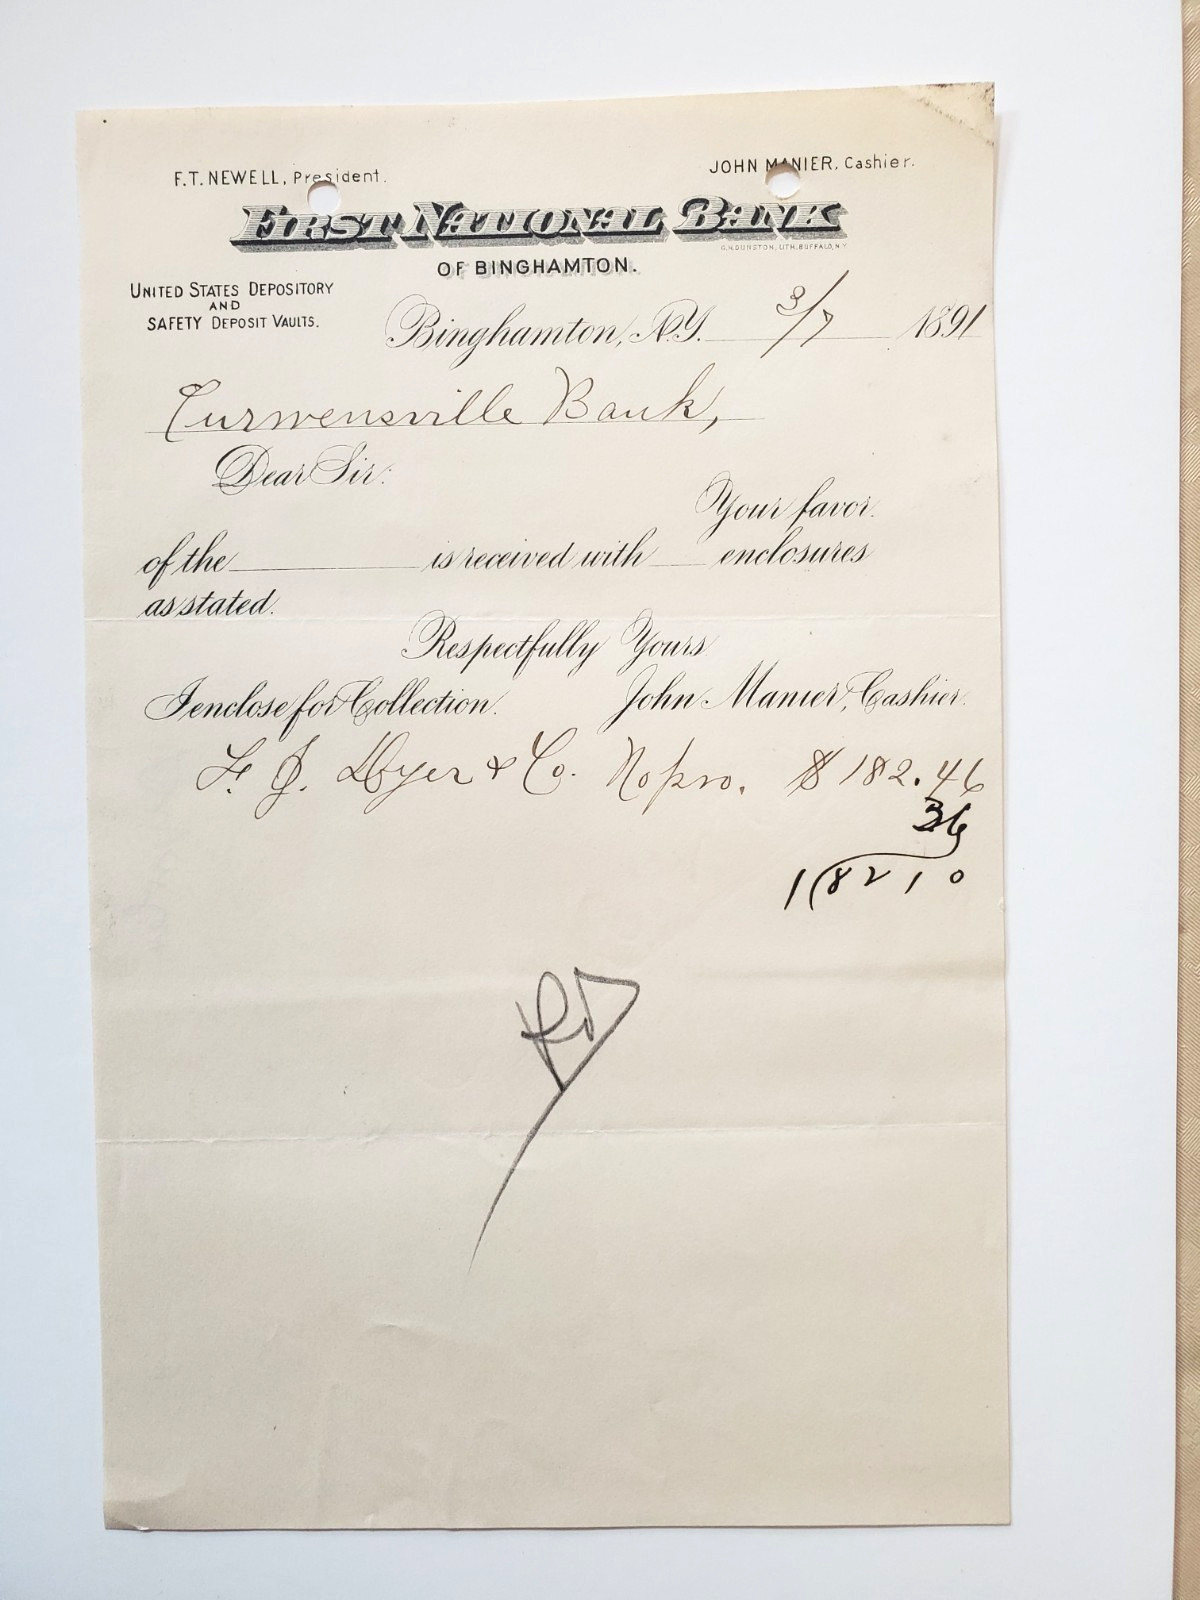 F.T. NEWELL, President.
JOHN MANIER, Cashier.
FIRST NATIONAL BANK
G.H. DUNSTON, LITH. BUFFALO, N.Y.
OF BINGHAMTON.
UNITED STATES DEPOSITORY
AND
SAFETY DEPOSIT VAULTS.
Binghamton, N.Y. 3/7 1891
Curwensville Bank,
Dear Sir:
Your favor
of the is received with enclosures
as stated.
Respectfully Yours
I enclose for Collection. John Manier, Cashier.
F. J. Dyer & Co. No pro. $182.46
36
182 10